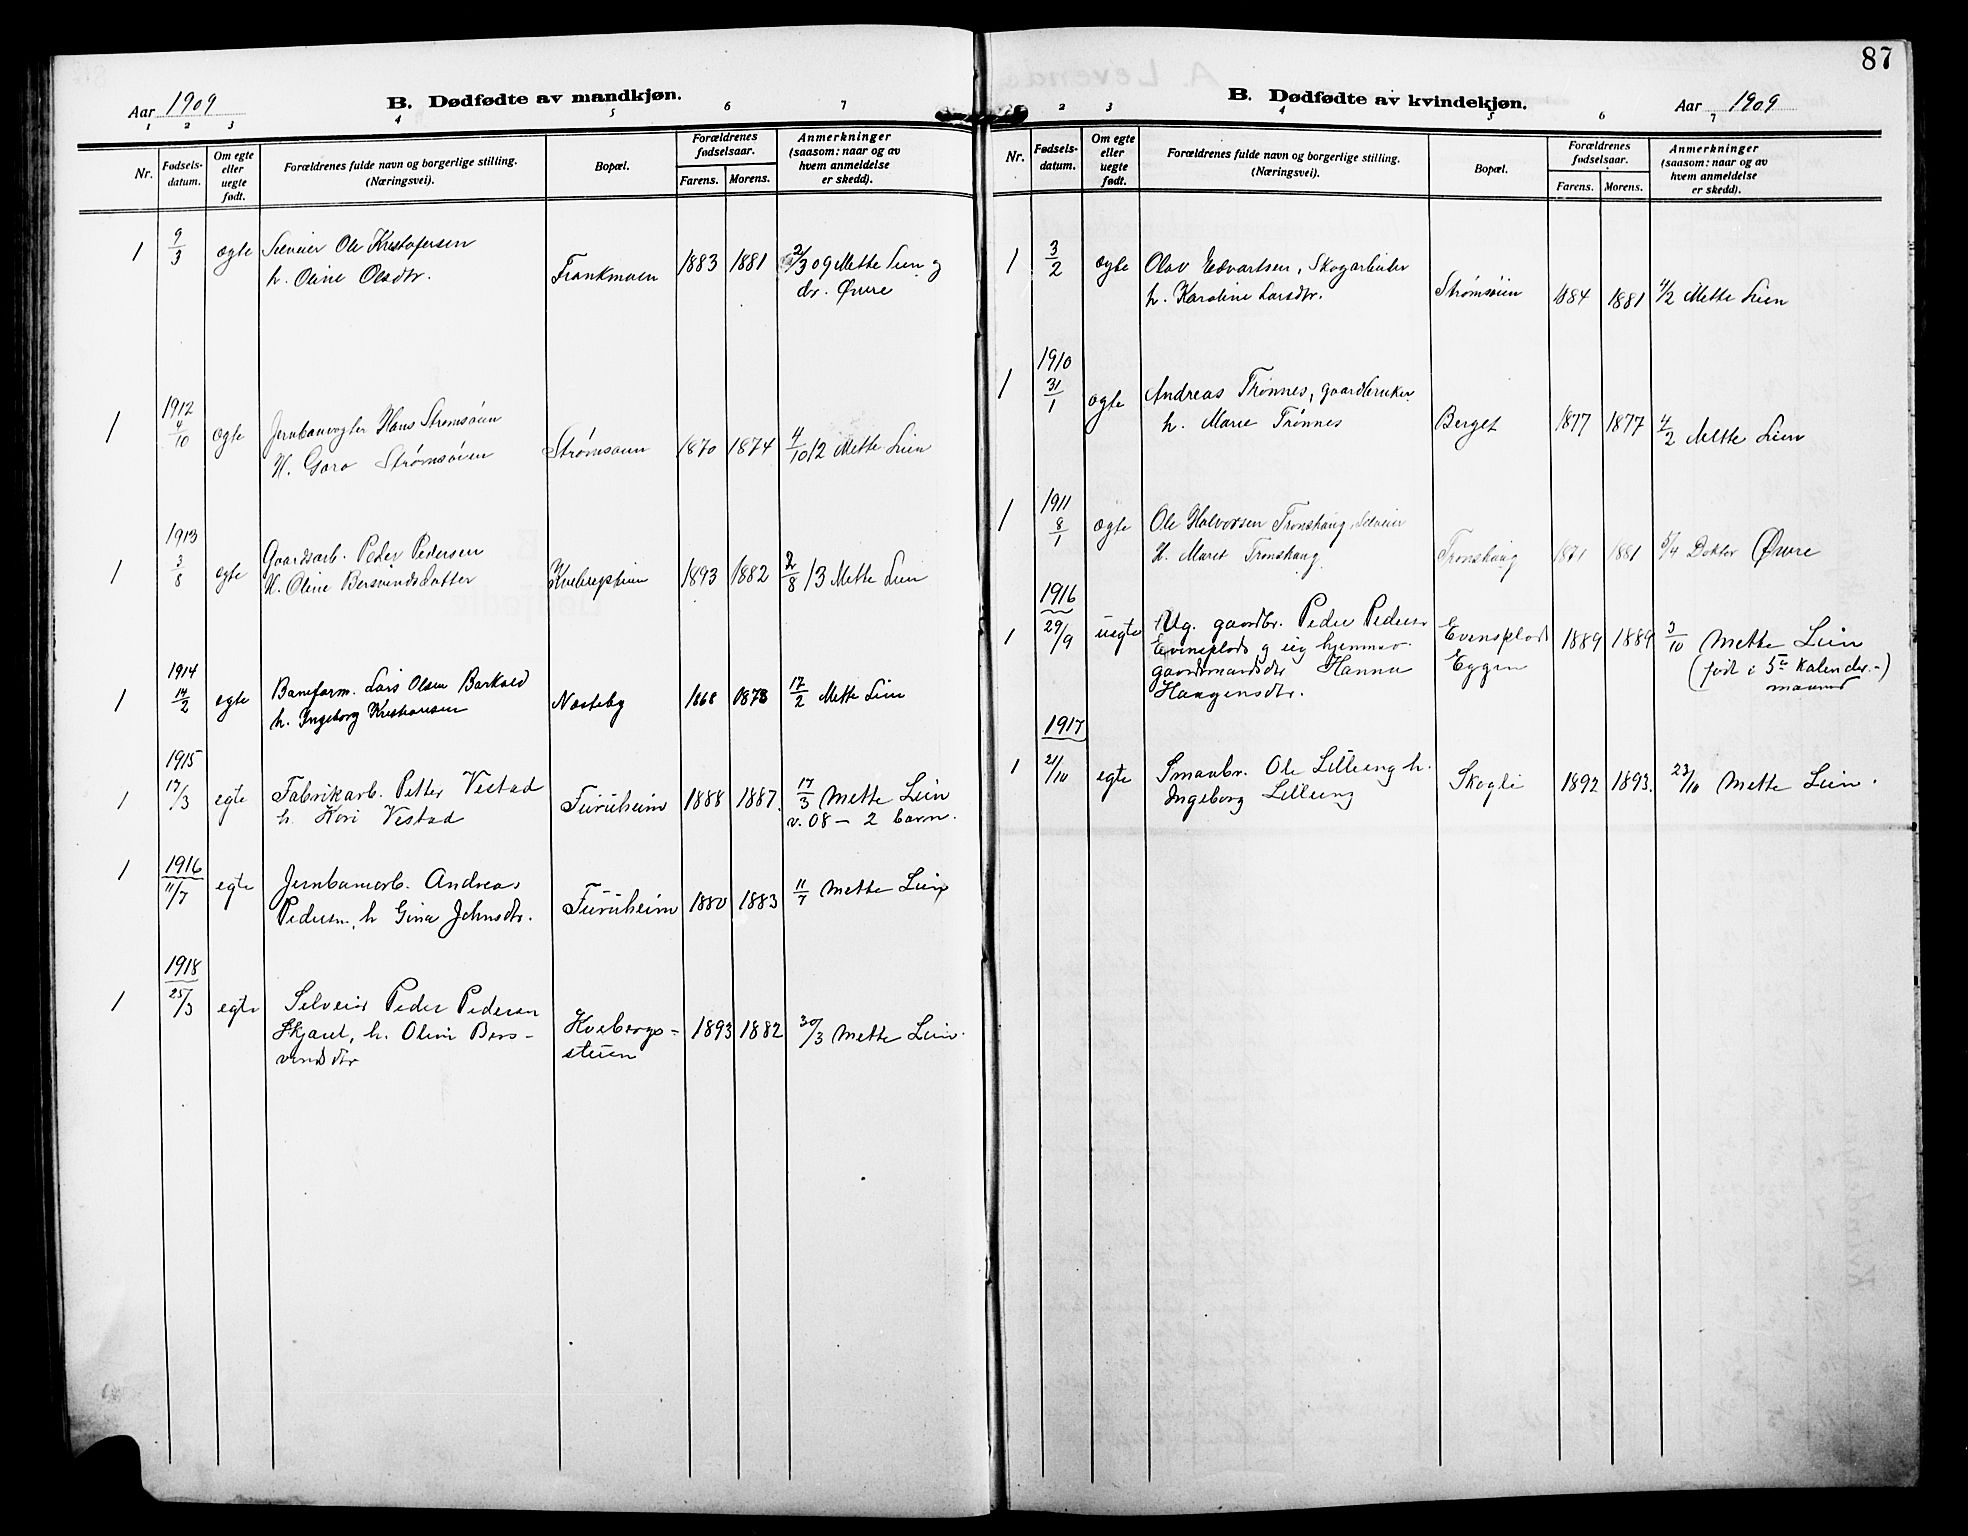 87
Aar 1909
B. Dødfødte av mandkjøn.
1 2 3 4 5 6 7
Nr.
Fødsels-
datum.
Om egte
eller
uegte
født.
Forældrenes fulde navn og borgerlige stilling.
(Næringsvei).
Bopæl.
Forældrenes
fødselsaar.
Farens. Morens.
Anmerkninger
(saasom: naar og av
hvem anmeldelse
er skedd).
1 9/3 ægte Selveier Ole Kristofersen
h. Oline Olsdtr. Frankmoen 1883 1881 2/3 09 Mette Lien og
dr. Øvre
1912
1 4/10 ægte Jernbanevogter Hans Strømsøien
H. Goro Strømsøien Strømsøien 1870 1874 4/10 12 Mette Lien
1913
1 3/8 egte Gaardsarb. Peder Pedersen
H. Oline Bersvendsdatter Kvebergstuen 1893 1882 2/8 13 Mette Lien
1914
1 14/2 egte Baneform. Lars Olsen Barkald
h. Ingeborg Kristiansen Næsteby 1868 1873 17/2 Mette Lien
1915
1 17/3 egte Fabrikarb. Petter Vestad
h. Kari Vestad Furuheim 1888 1887. 17/3 Mette Lien
v. 08 – 2 barn.
1916
1 11/7 egte Jernbanearb. Andreas
Pedersen, h Gina Johnsdtr. Furuheim 1880 1883 11/7 Mette Lien
1918
1 25/3 egte Selveier Peder Pedersen
Skjæret, h. Oline Bers-
vendsdtr Kvebergs-
stuen 1893 1882 30/3 Mette Lien.
B. Dødfødte av kvindekjøn.
Aar 1909
2 3 4 5 6 7
Nr.
Fødsels-
datum.
Om egte
eller
uegte
født.
Forældrenes fulde navn og borgerlige stilling.
(Næringsvei).
Bopæl.
Forældrenes
fødselsaar.
Farens. Morens.
Anmerkninger
(saasom: naar og av
hvem anmeldelse
er skedd).
1 3/2 ægte Olav Edvartsen, Skogarbeider
h. Karoline Larsdtr. Strømsøien 1884 1881 4/2 Mette Lien
1910
1 31/1 ægte Andreas Trønnes, gaardbruker
h. Marie Trønnes Berget 1877 1877 4/2 Mette Lien
1911
1 8/1 ægte Ole Halvorsen Tronshaug, Selveier
H. Maret Tronshaug Tronshaug 1871 1881 5/4 Doktor Øvre
1916
1 29/9 uegte Ug. gaardbr. Peder Peders.
Evensplads og ug hjemmev.
gaardmandsdtr Hanna
Haagensdtr. Evensplads
Eggen 1889 1889 3/10 Mette Lien
(født i 5te Kalender-)
maaned
1917
1 21/10 egte Smaabr. Ole Lilleeng h.
Ingeborg Lilleeng Skogli 1892 1893. 23/10 Mette Lien.